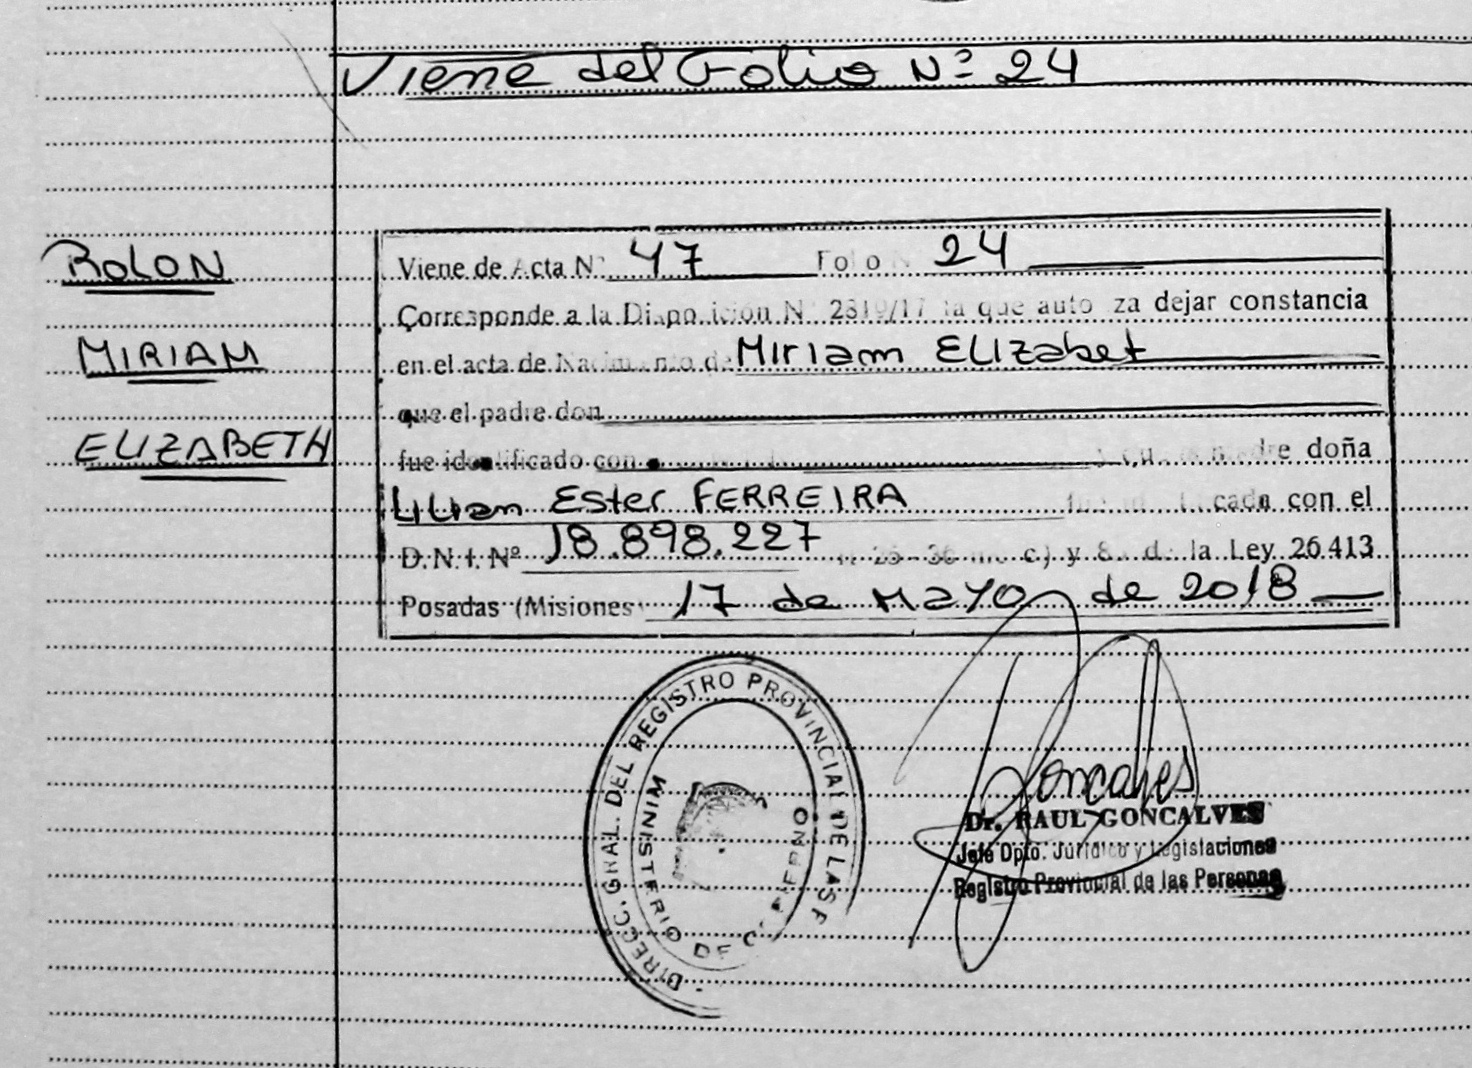 Viene del Folio Nº 24
ROLON
MIRIAM
ELIZABETH
Viene de Acta Nº 47 Folio 24
Corresponde a la Disposición Nº 2319/17 la que autoriza dejar constancia
en el acta de Nacimiento de Miriam Elizabet
que el padre don
fue identificado con y cu madre doña
Lilian Ester FERREIRA cada con el
D.N.I. Nº 18.898.227 c) y de la Ley 26.413
Posadas (Misiones) 17 de Mayo de 2018
DIRECC. GRAL. DEL REGISTRO PROVINCIAL DE LAS P
MINISTERIO DE GOBIERNO
Goncalves
Dr. RAUL GONCALVES
Jefe Dpto. Jurídico y Legislaciones
Registro Provincial de las Personas